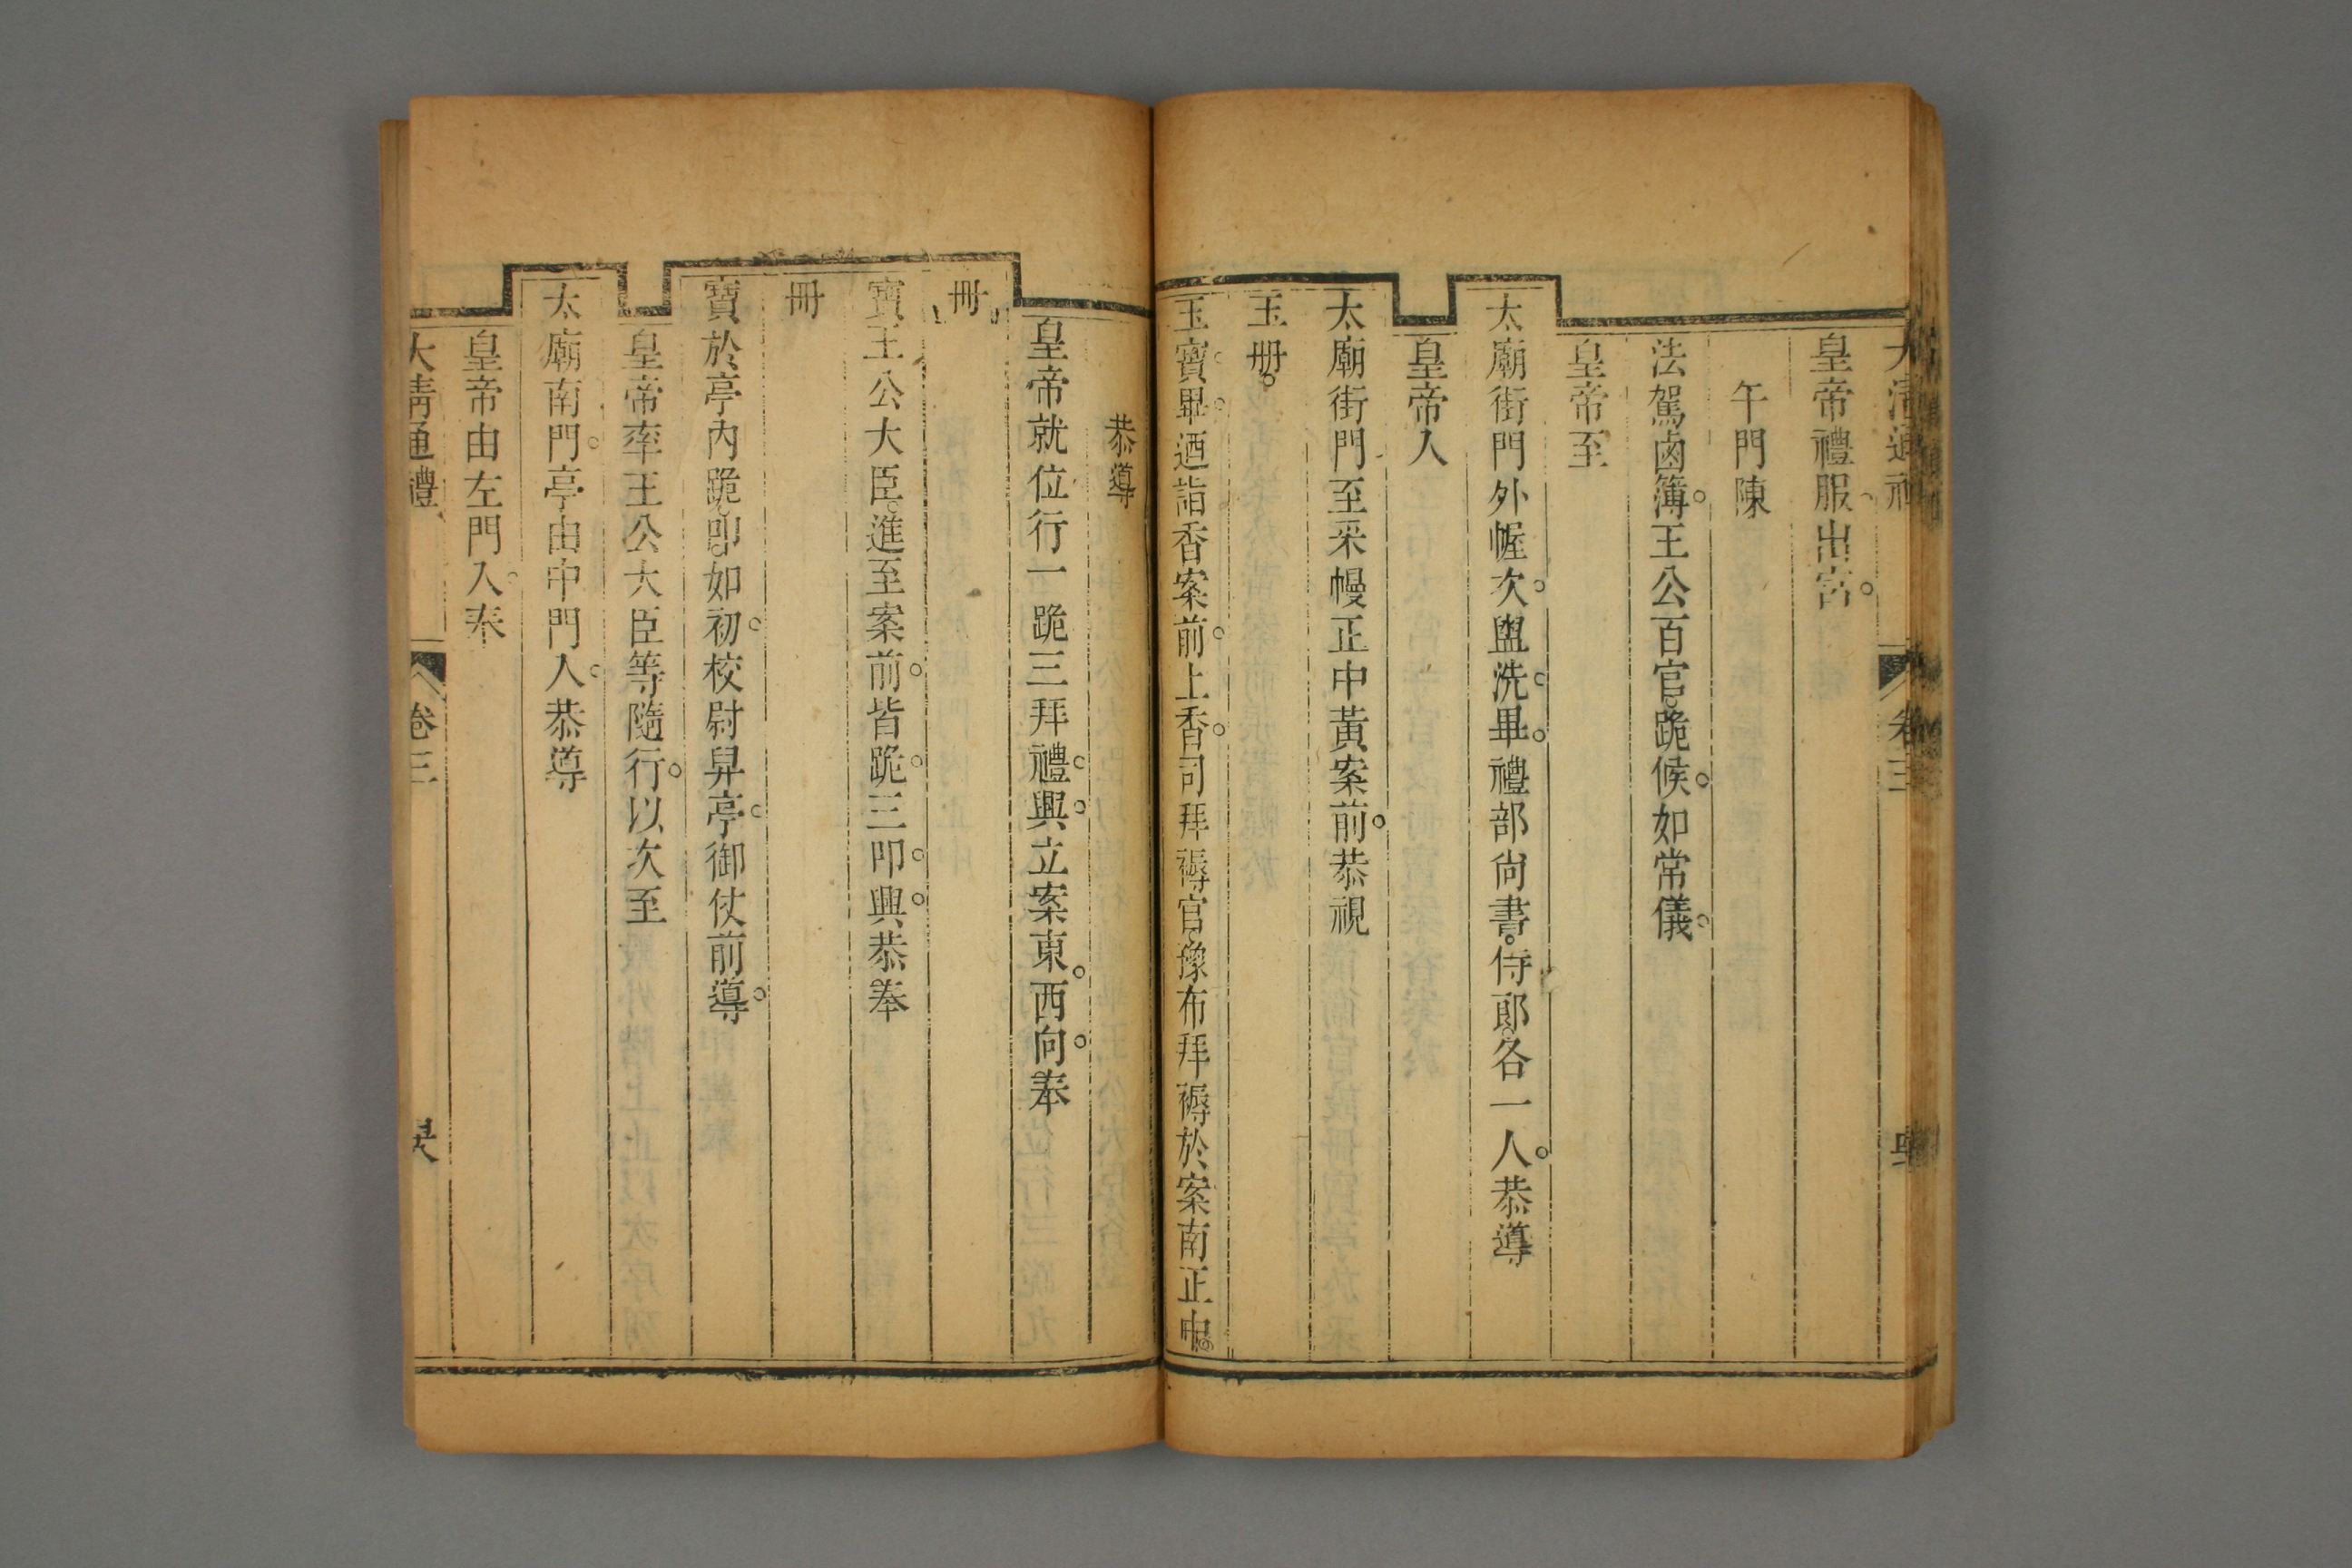 大清通禮 卷三
皇帝禮服出宮。
午門陳
法駕鹵簿。王公百官。跪候。如常儀。
皇帝至
太廟街門外幄次。盥洗。畢。禮部尚書。侍郎。各一人。恭導
皇帝入
太廟街門至采幔正中黃案前。恭視
玉册。
玉寶。畢。迺詣香案前。上香。司拜褥官。豫布拜褥於案南正中。
恭導
皇帝就位行一跪三拜禮。興。立案東。西向。奉
冊
寶王公大臣。進至案前。皆跪。三叩。興。恭奉
冊
寶於亭內跪。叩。如初。校尉舁亭。御仗前導。
皇帝率王公大臣等隨行。以次至
太廟南門。亭由中門入。恭導
皇帝由左門入。奉
大清通禮 卷三